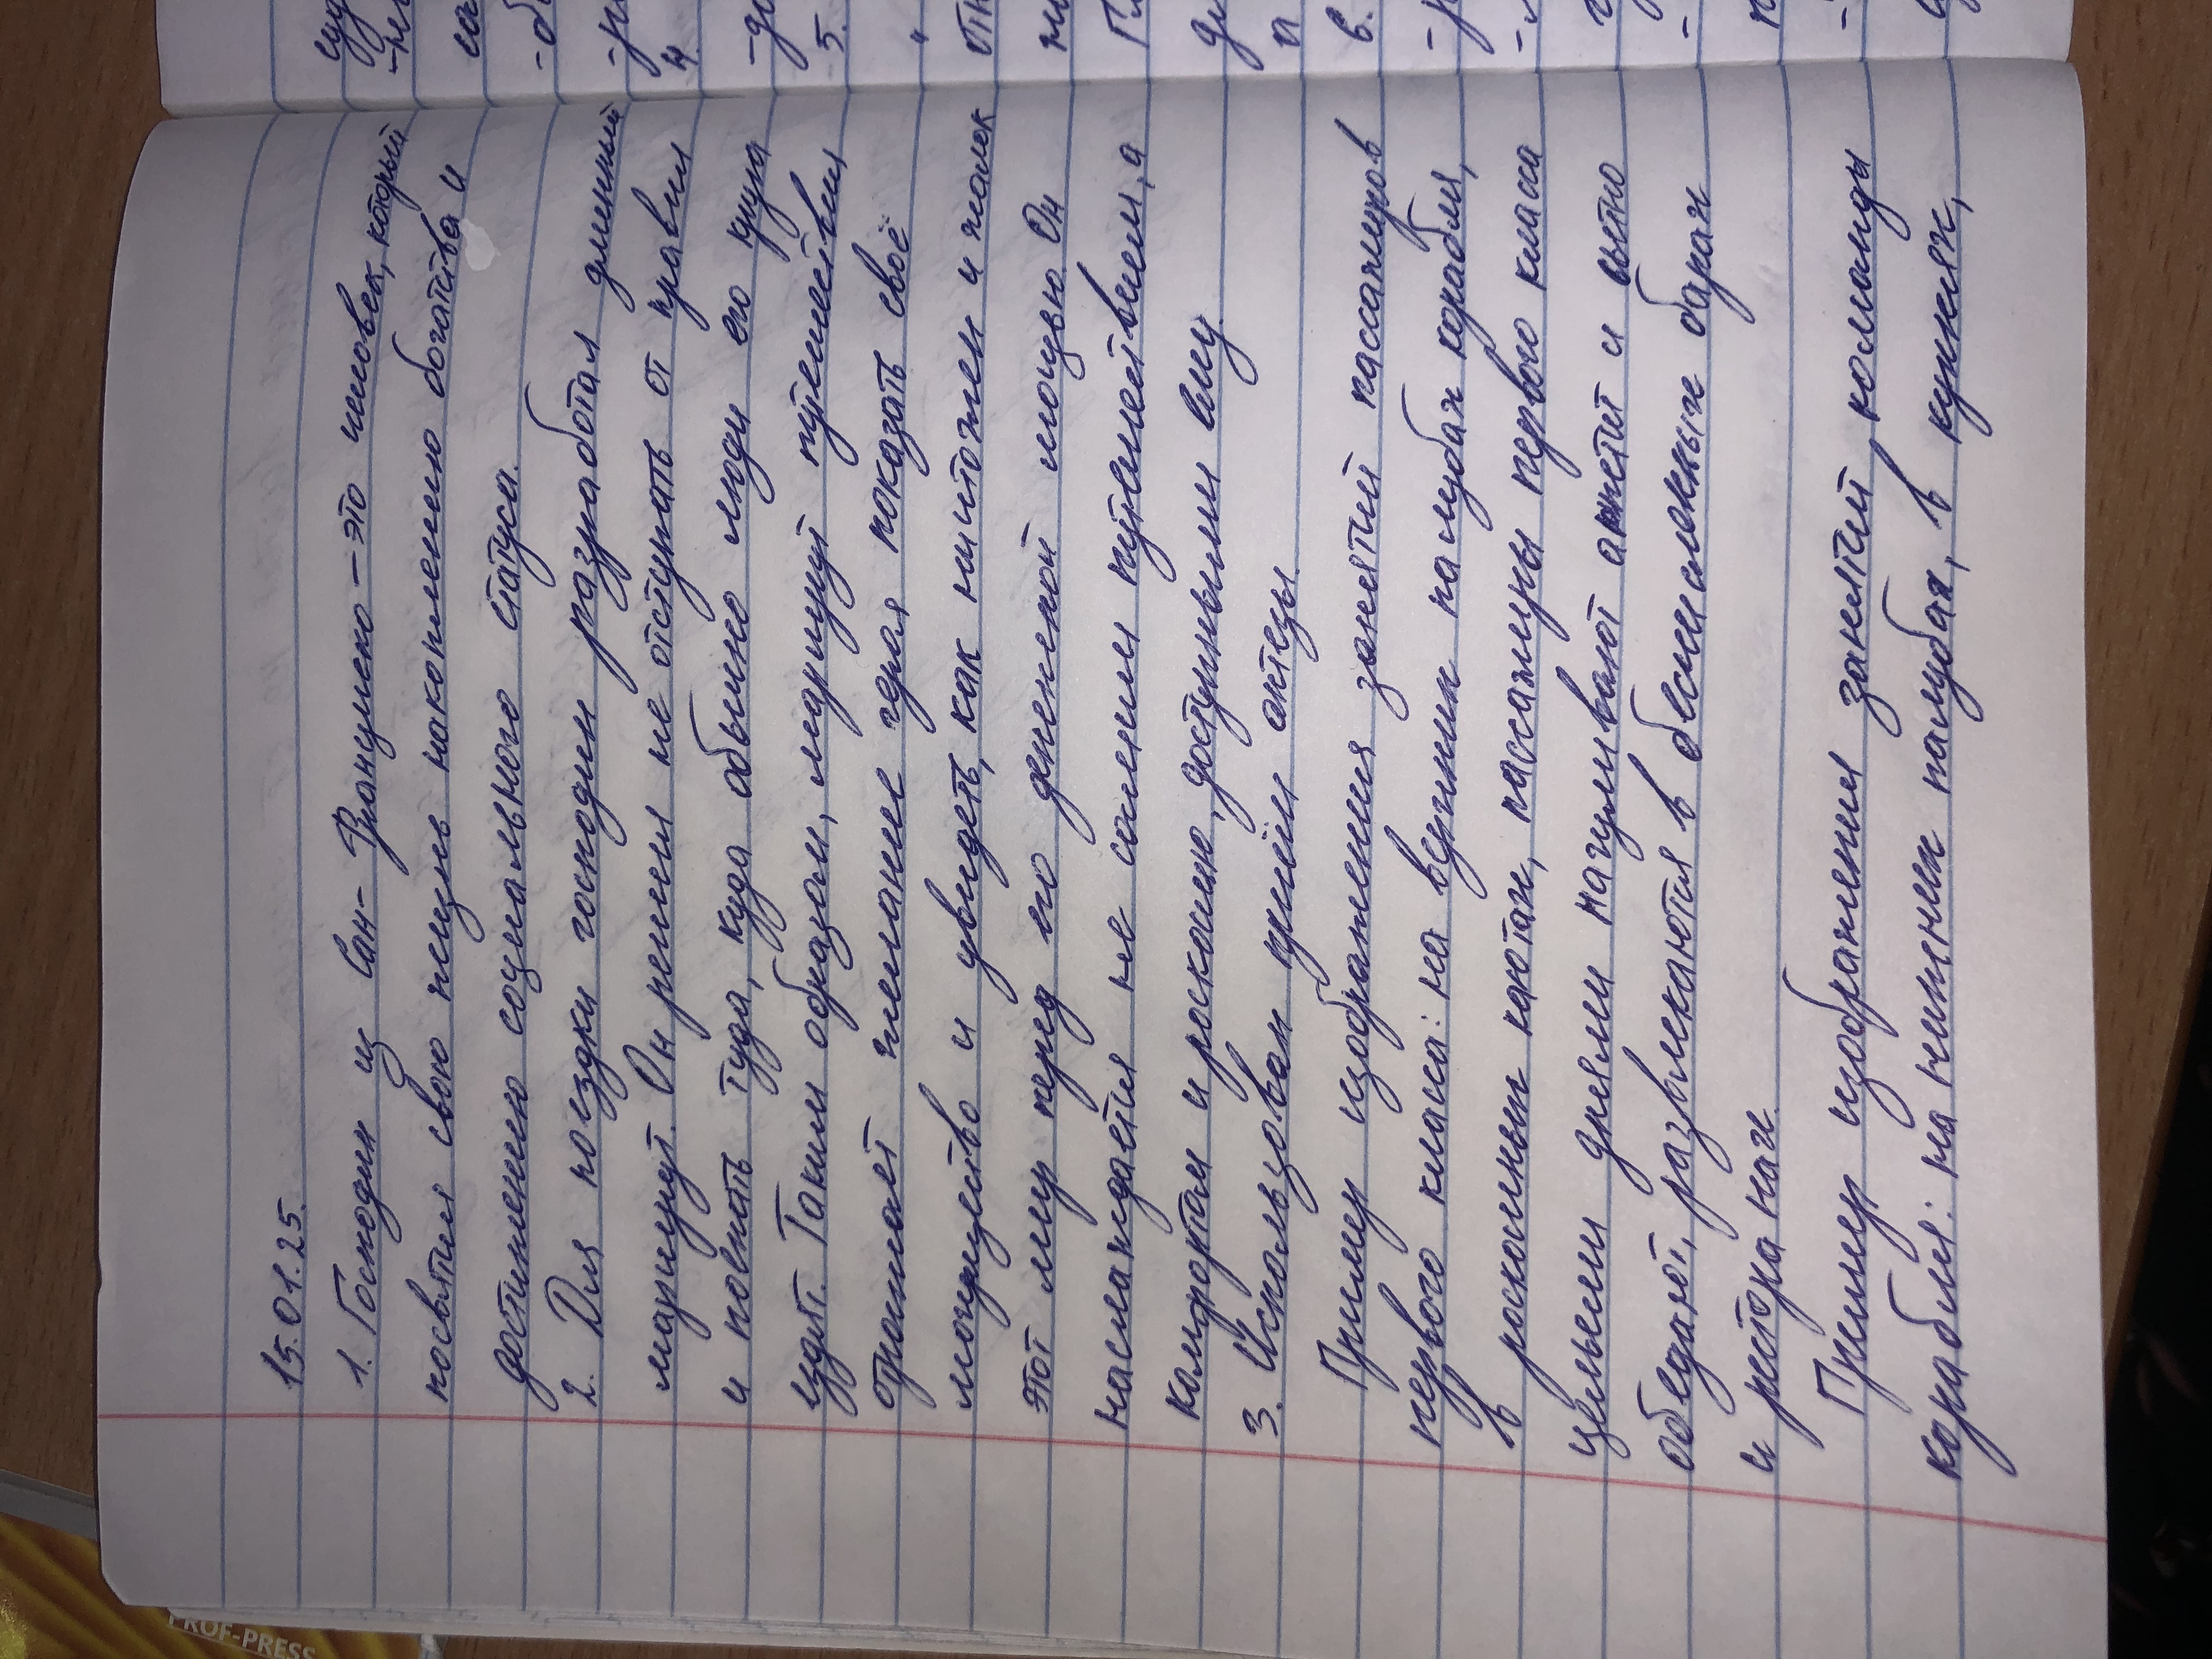 15.01.25.
1. Господин из Сан-Франциско – это человек, который
посвятил свою жизнь накоплению богатства и
достижению социального статуса.
2. Для поездки господин разработал длинный
маршрут. Он решил не отступать от правил
и поехать туда, куда обычно люди его круга
ездят. Таким образом, маршрут путешествия
отражает желание героя показать своё
могущество и увидеть, как ничтожен и жалок
этот мир перед его денежной мощью. Он
наслаждается не самим путешествием, а
комфортом и роскошью, доступными ему.
3. Использован приём антезы.
Пример изображения занятий пассажиров
первого класса: на верхних палубах корабля,
в роскошных каютах, пассажиры первого класса
целыми днями нагуливают аппетит и сытно
обедают, развлекаются в бесчисленных барах
и ресторанах.
Пример изображения занятий команды
корабля: на нижних палубах, в кухнях,
5.
в.
PROF-PRESS